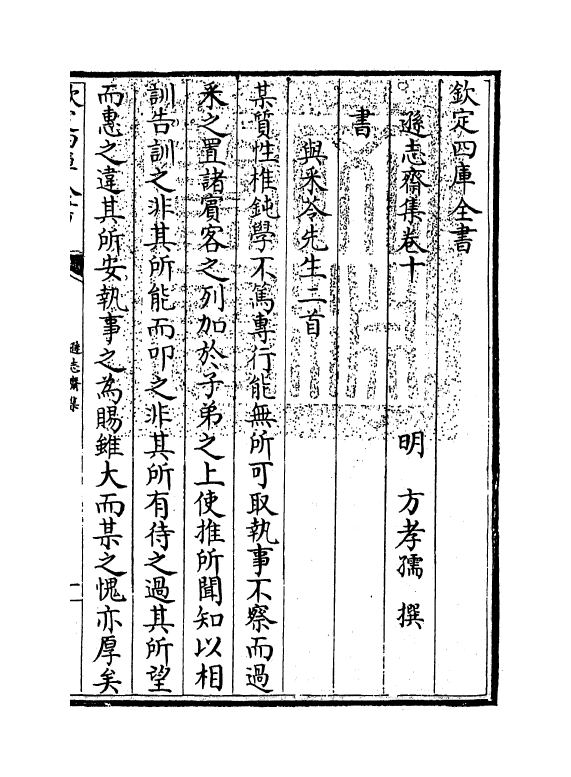 欽定四庫全書
遜志齋集卷十
明 方孝孺 撰
書
與釆苓先生二首
某質性椎鈍學不篤專行能無所可取執事不察而過
釆之置諸賔客之列加於子弟之上使推所聞知以相
訓告訓之非其所能而叩之非其所有待之過其所望
而惠之違其所安執事之為賜雖大而某之愧亦厚矣
遜志齋集